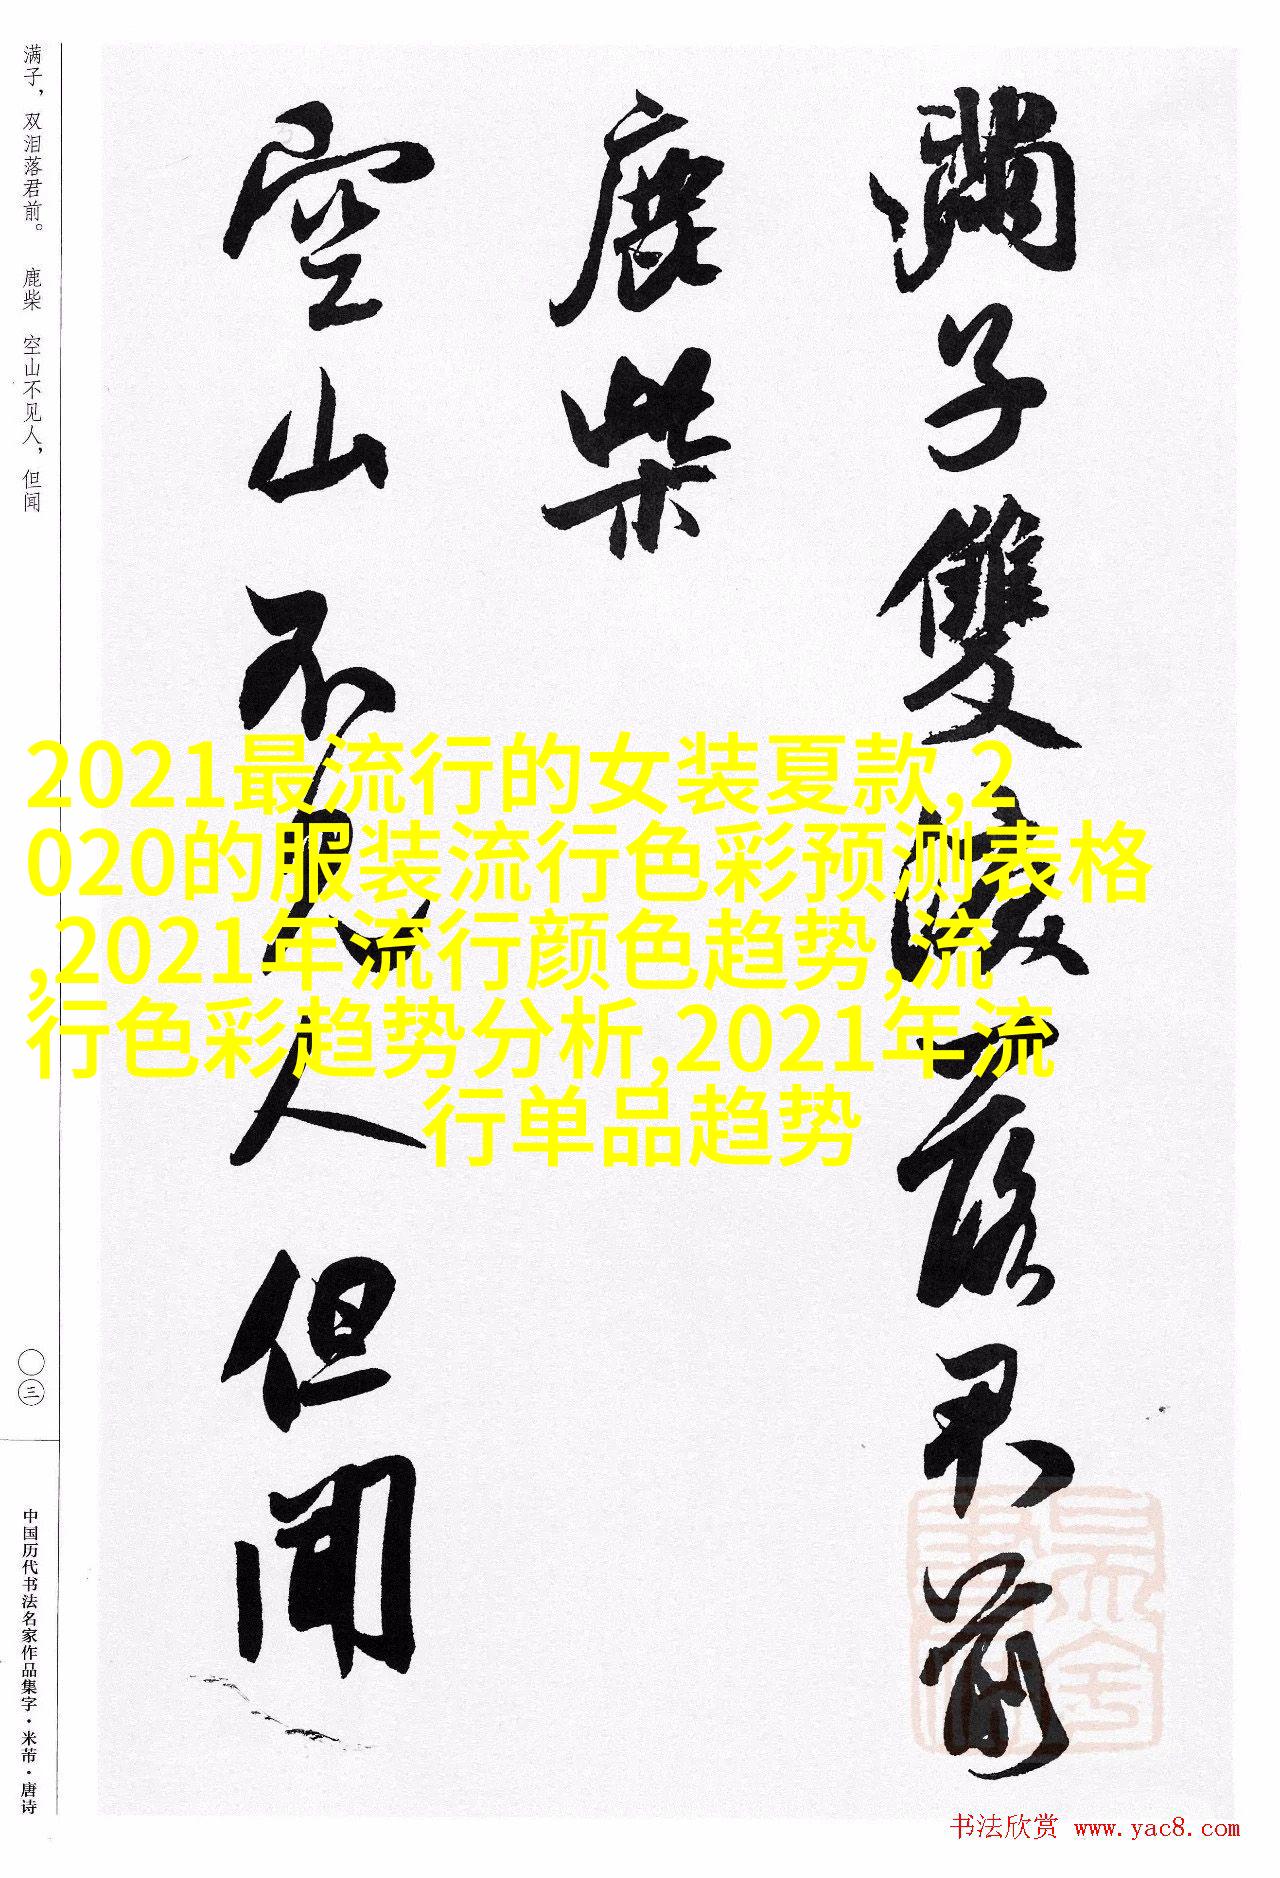 滿子雙淚落君前
鹿柴
空山不見人但聞
满子，双泪落君前。 鹿柴 空山不见人，但闻
〇三
中国历代书法名家作品集字·米芾·唐诗
2021最流行的女装夏款,2
020的服装流行色彩预测表格
,2021年流行颜色趋势,流
行色彩趋势分析,2021年流
行单品趋势
书法欣赏 www.yac8.com